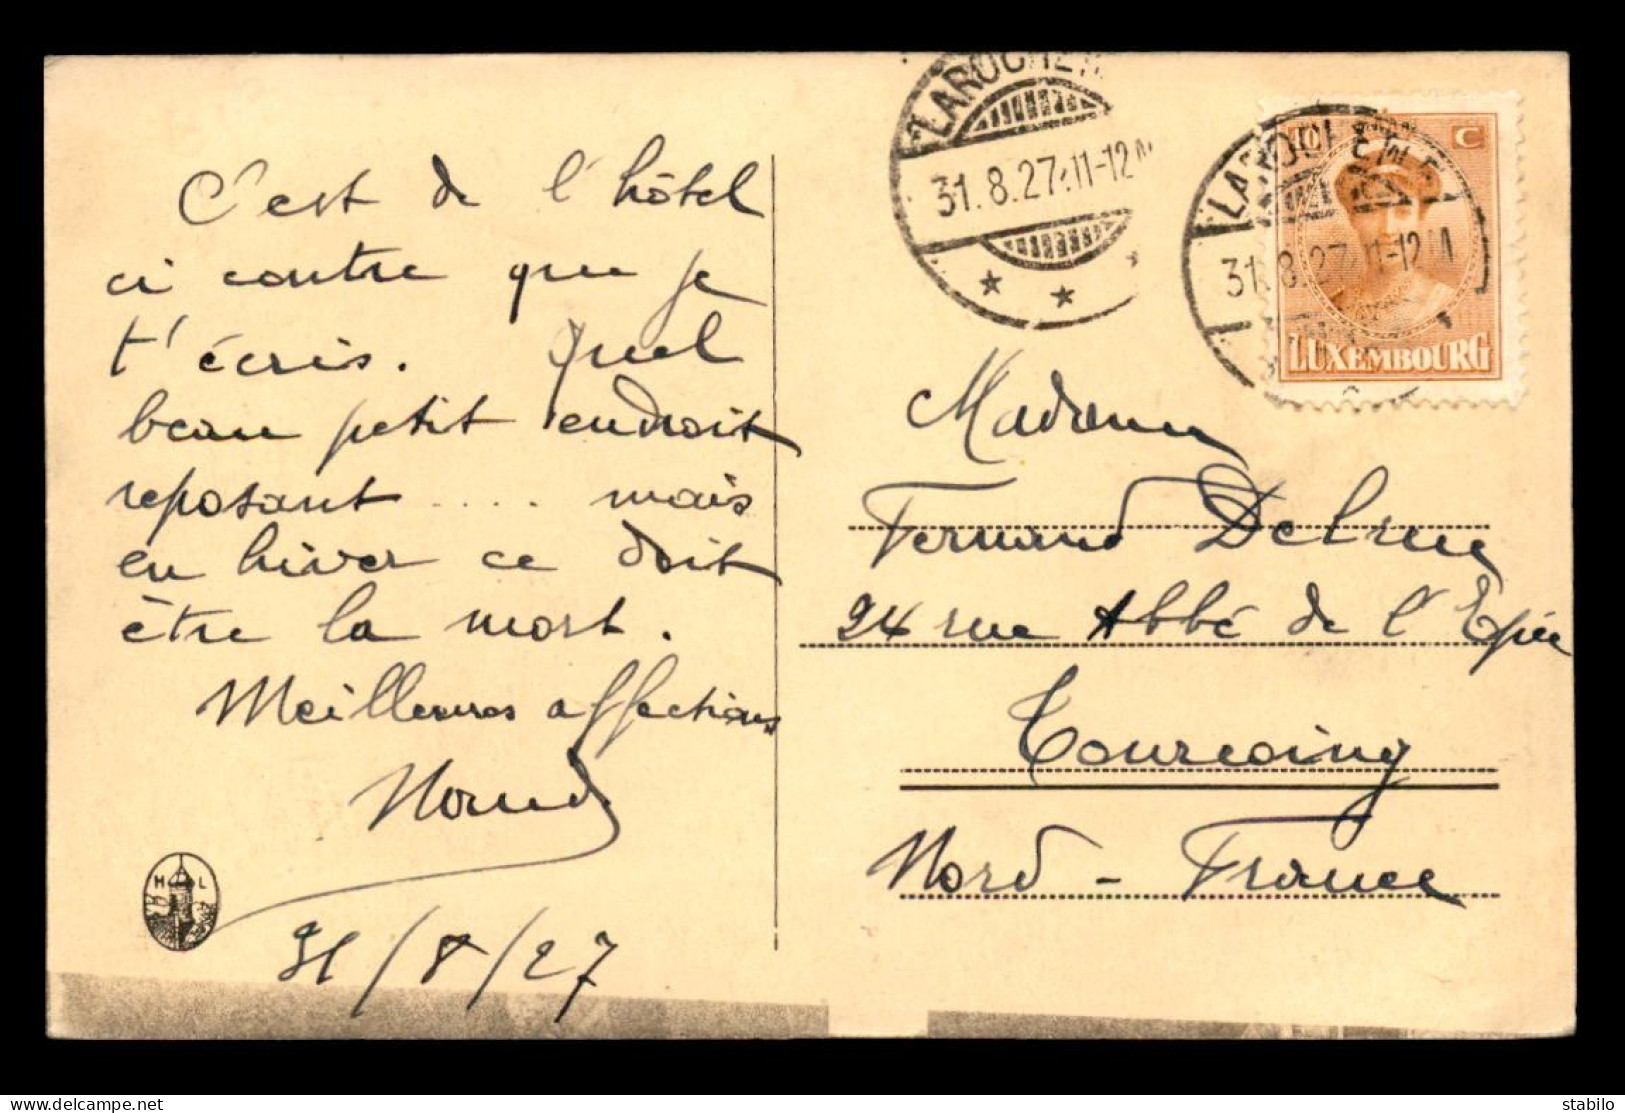 C'est de l'hôtel
ci contre que je
t'écris. Quel
beau petit endroit
reposant .... mais
en hiver ce doit
être la mort.
Meilleures affections
31/8/27
H L
31.8.27.11-12
31.8.27.11-12
40 C
LUXEMBOURG
Madame
Fernand Delrue
94 rue Abbé de l'Epée
Tourcoing
Nord - France
stabilo